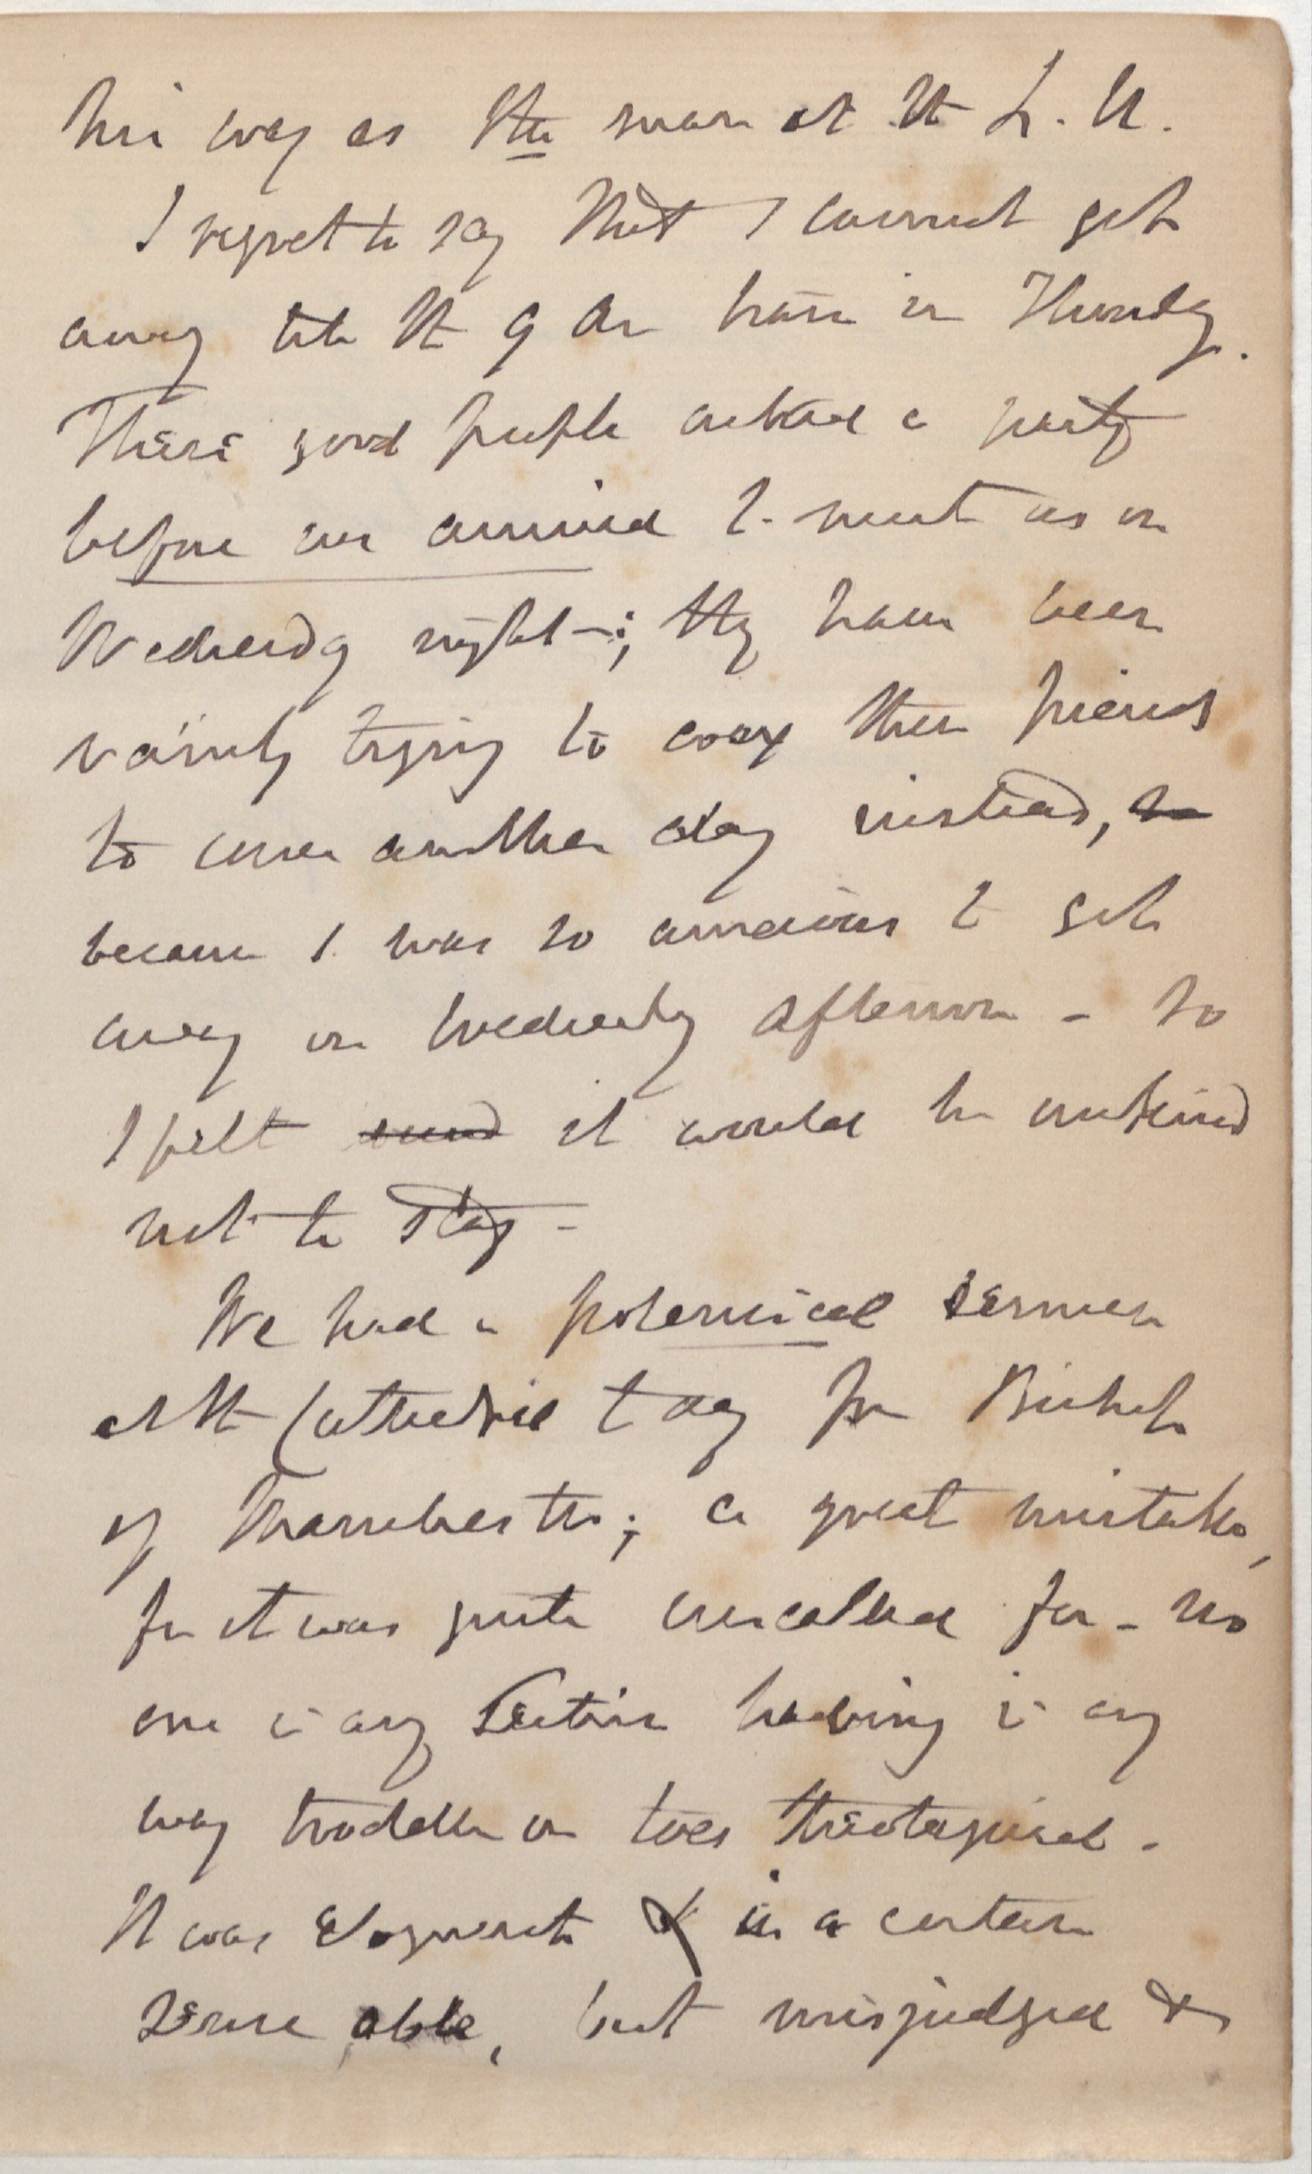 his way as the man at the L. U.
I regret to say that I cannot get
away till the 9 am train on Thursday.
These good people asked a party
before we arrived to meet us on
Wednesday night -; they have been
vainly trying to coax their friends
to come another day instead, so
because I was so anxious to get
away on Wednesday afternoon - so
I felt it would be unkind
not to stay -
We had a polemical sermon
at the Cathedral today from Bishop
of Manchester; a great mistake,
for it was quite uncalled for - no
one in any Section having in any
way trodden on toes theological -
It was eloquent & in a certain
sense able, but misjudged &